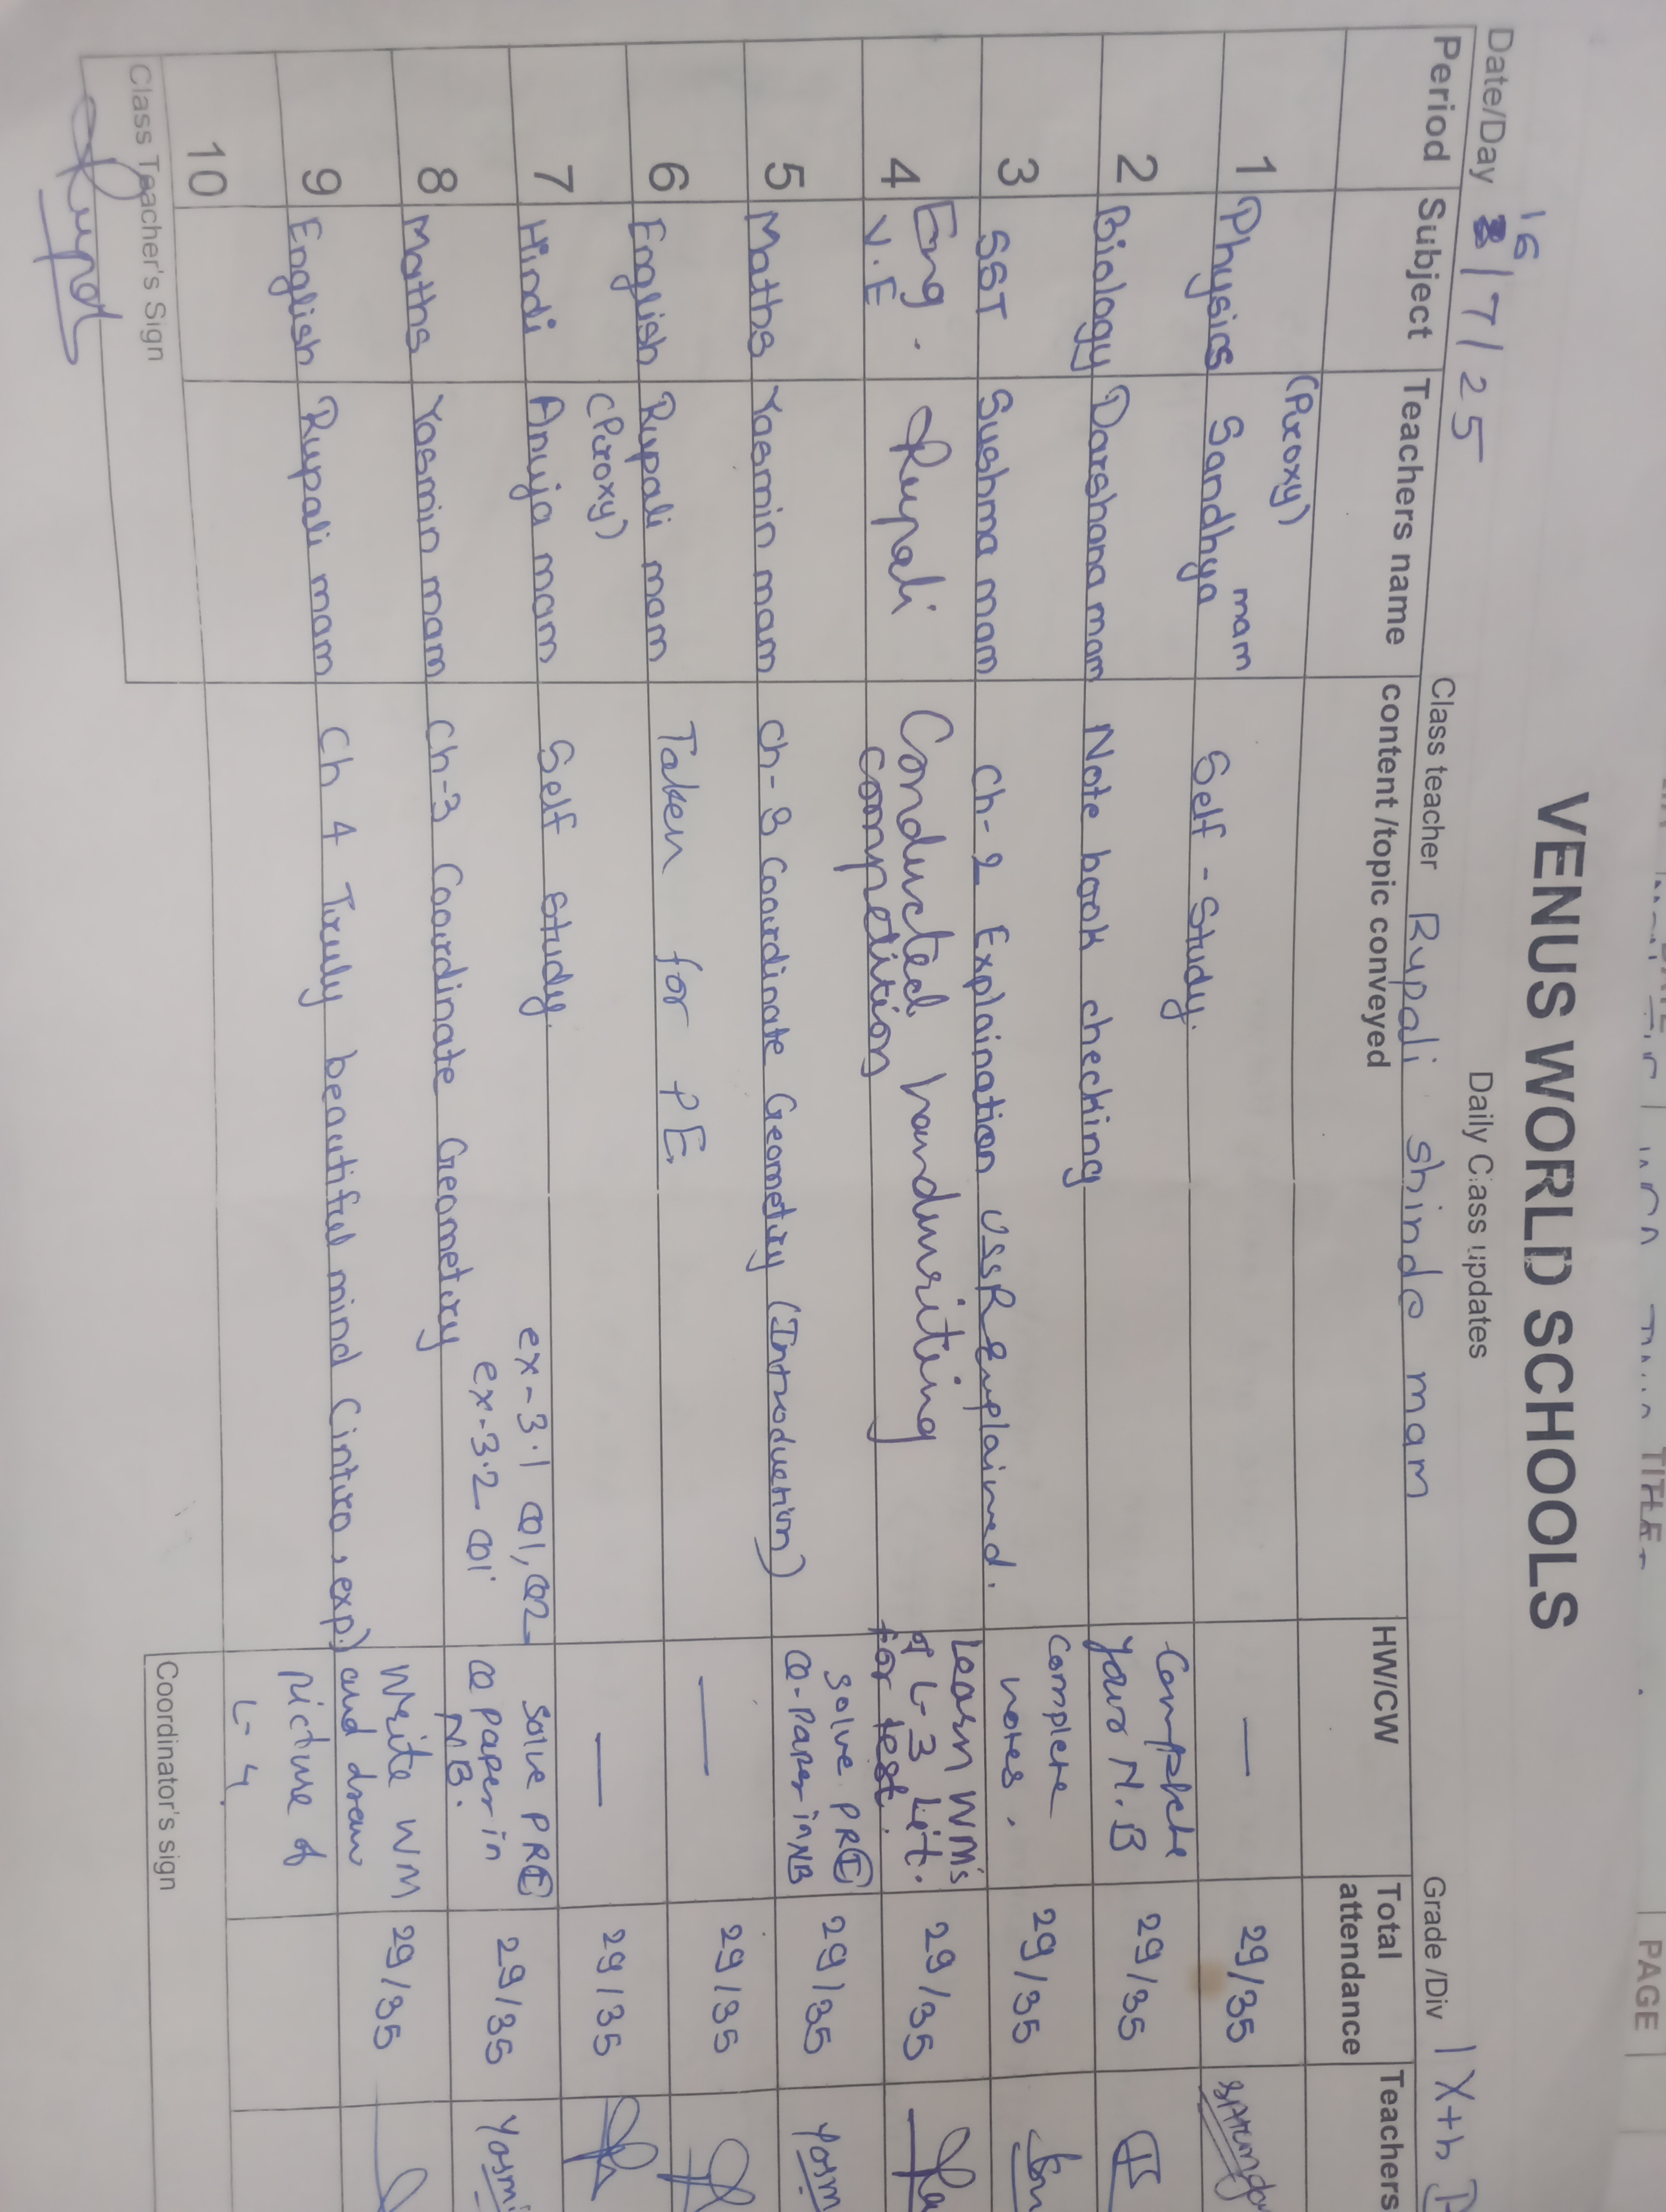 VENUS WORLD SCHOOLS
Daily Class updates
Date/Day 16/7/25 Class teacher Rupali shinde mam Grade/Div IXth
Period Subject Teachers name content /topic conveyed HW/CW Total attendance Teachers
1 Physics (Proxy) Sandhya mam Self - Study. — 29/35
2 Biology Darshana mam Note book checking Complete your N.B 29/35
3 SST Sushma mam Ch-2 Explaination USSR explained. Complete notes. 29/35
4 Eng. V.E Rupali Conducted handwriting competition Learn WM's of L-3 Lit. for test. 29/35
5 Maths Yasmin mam Ch-3 Coordinate Geometry (Introduction) solve PRE Q-Paper in NB 29/35 Yasm
6 English Rupali mam Taken for PE — 29/35
7 Hindi (Proxy) Anuja mam Self study. — 29/35
8 Maths Yasmin mam Ch-3 Coordinate Geometry ex-3.1 Q1, Q2 ex-3.2 Q1 solve PRE Q paper in NB. 29/35 Yasmi
9 English Rupali mam Ch 4 Truly beautiful mind (intro, exp.) Write WM and draw picture of L-4 29/35
10
Class Teacher's Sign Coordinator's sign
TITLE
PAGE